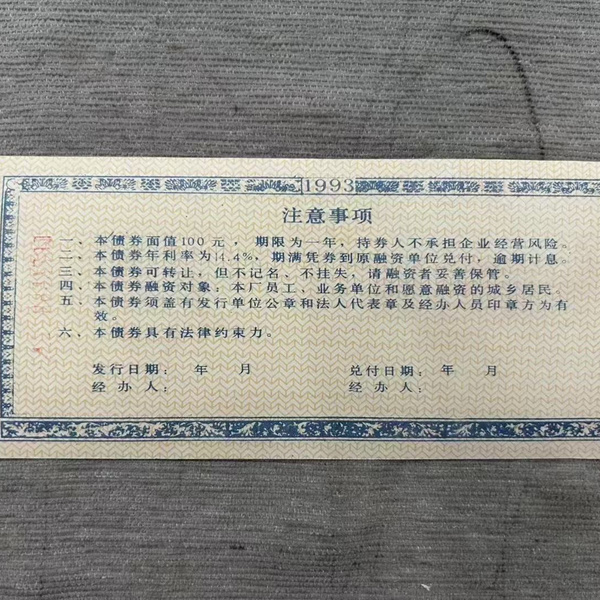 1993
注意事项
一、本债券面值100元，期限为一年，持券人不承担企业经营风险。
二、本债券年利率为14.4%，期满凭券到原融资单位兑付，逾期计息。
三、本债券可转让，但不记名、不挂失，请融资者妥善保管。
四、本债券融资对象：本厂员工、业务单位和愿意融资的城乡居民。
五、本债券须盖有发行单位公章和法人代表章及经办人员印章方为有
效。
六、本债券具有法律约束力。
发行日期： 年 月 兑付日期： 年 月
经 办 人： 经 办 人：